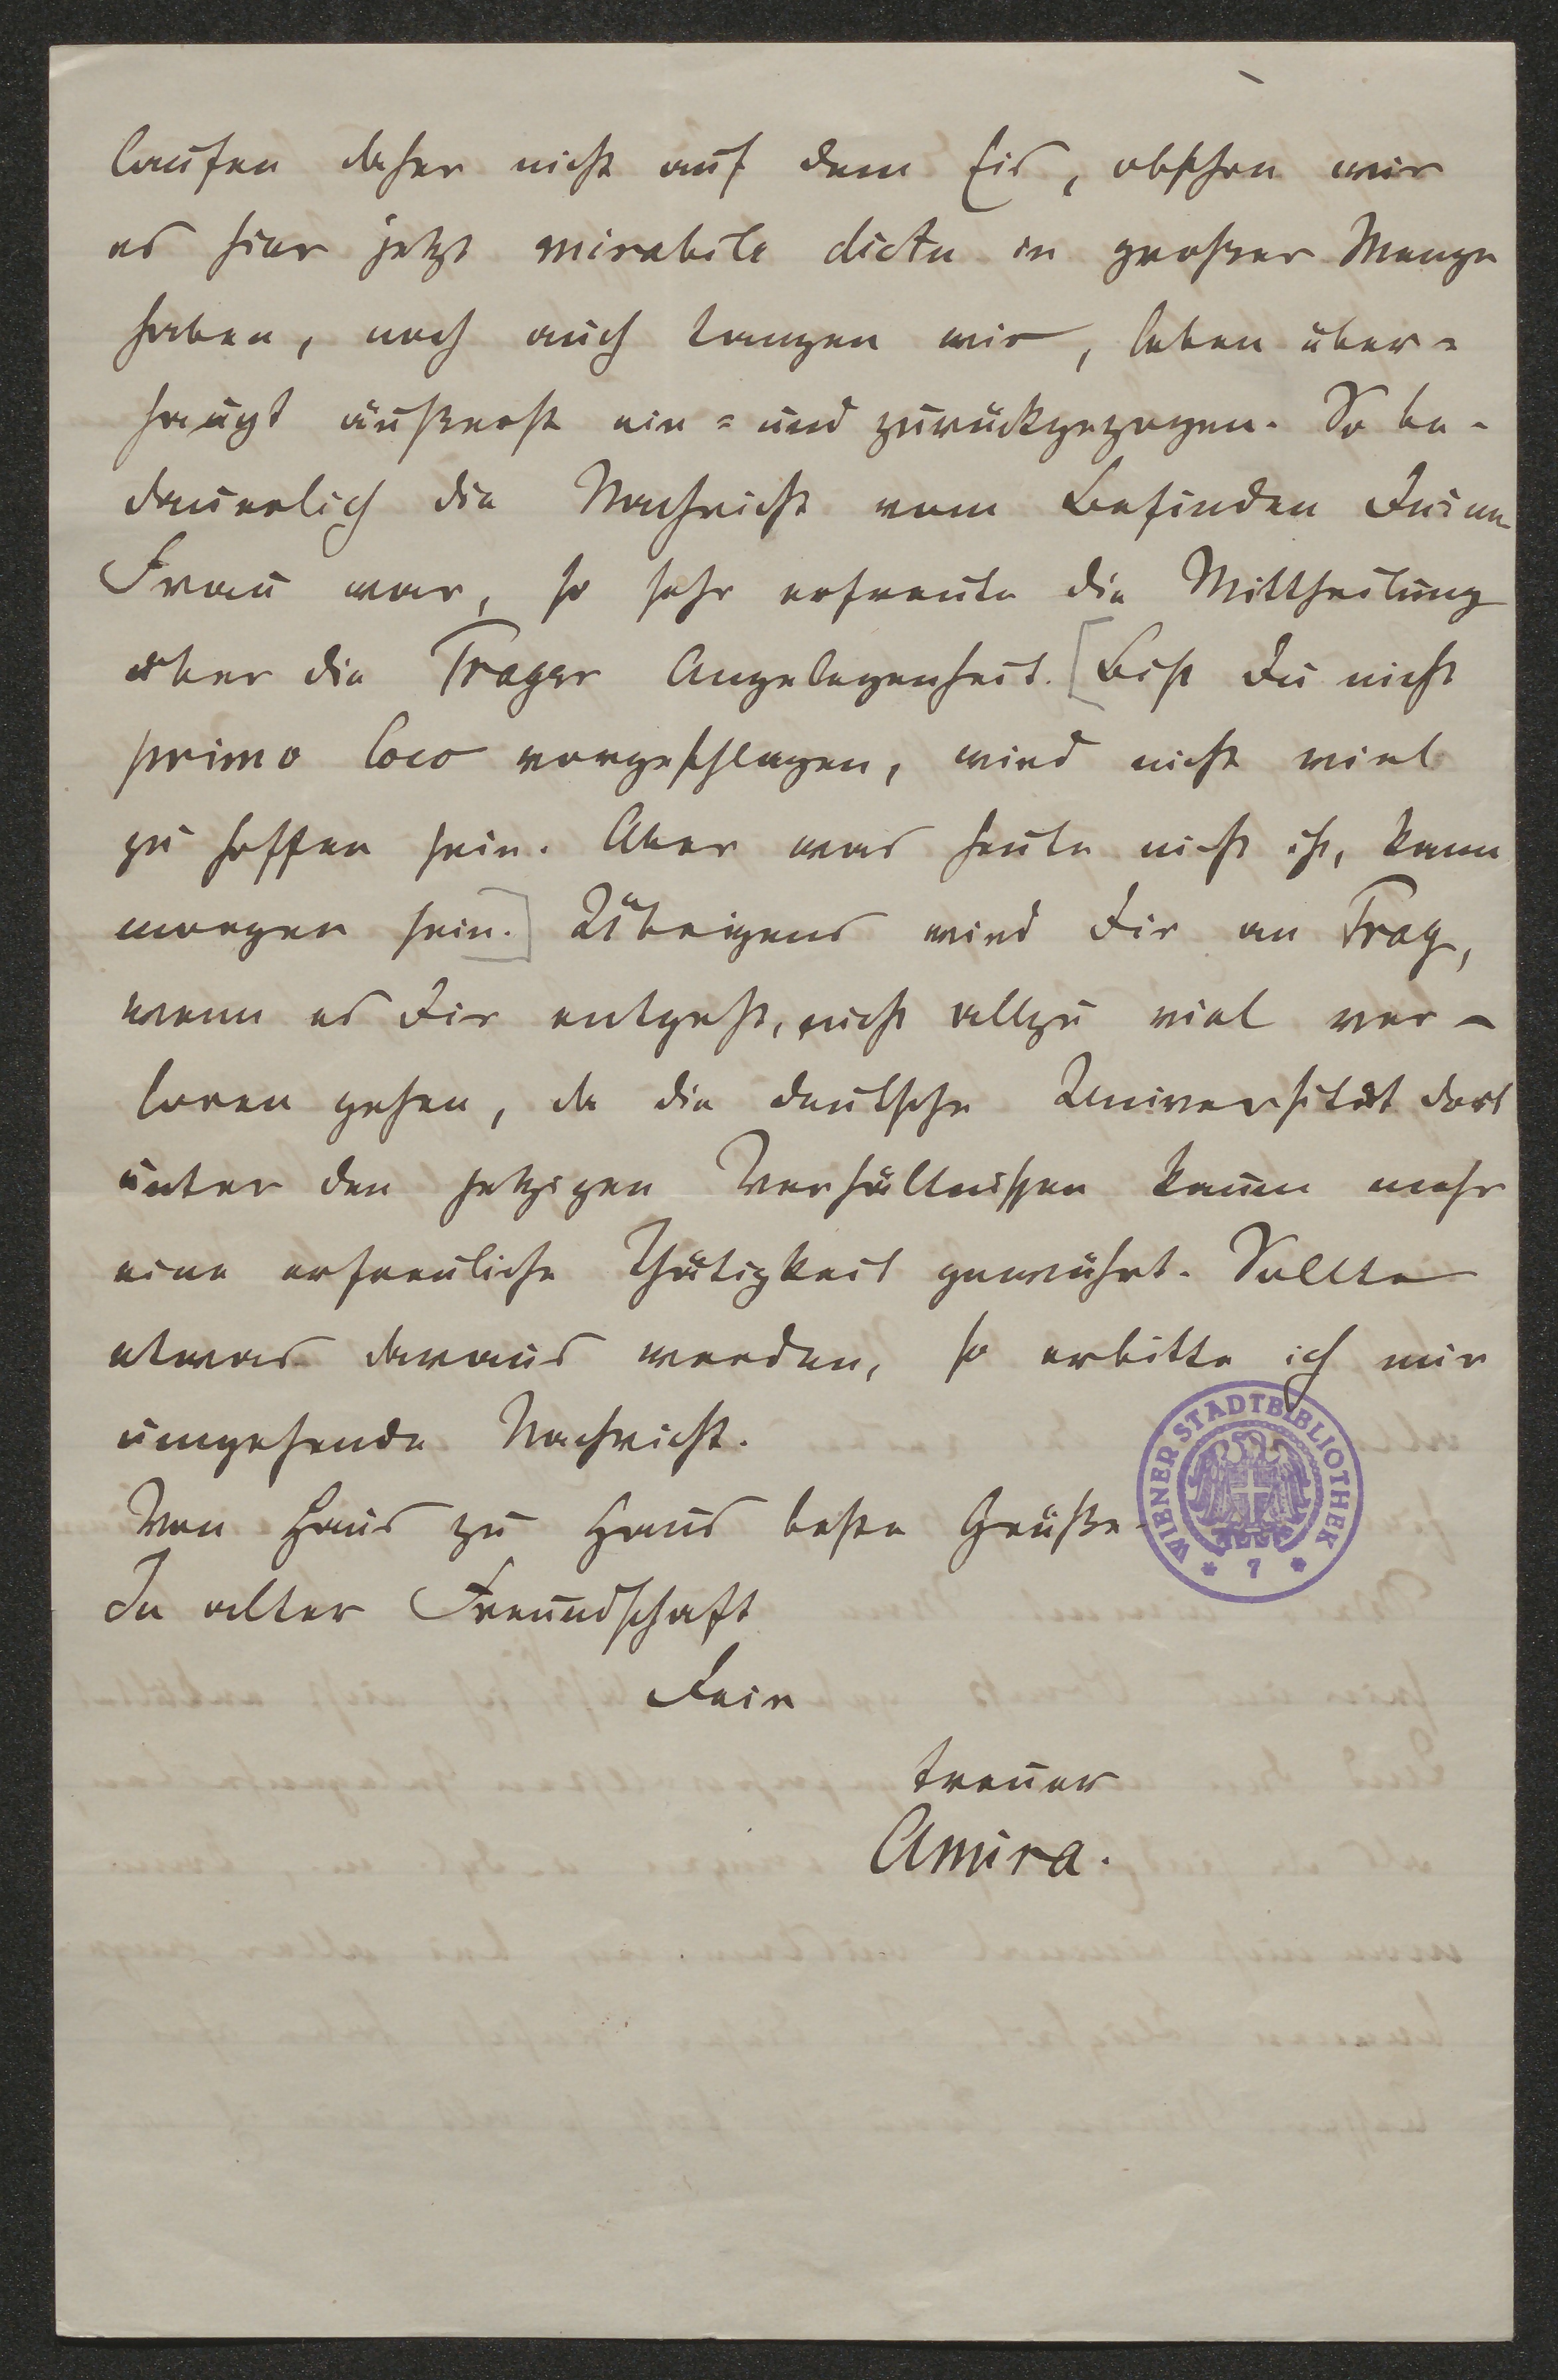 laufen daher nicht auf dem Eis, obschon wir
es hier jetzt mirabile dictu in großer Menge
haben, noch auch tanzen wir, leben über=
haupt äußerst ein= und zurückgezogen. So be-
dauerlich die Nachricht vom Befinden Deiner
Frau war, so sehr erfreute die Mittheilung
über die Prager Angelegenheit. [Bist Du nicht
primo loco vorgeschlagen, wird nicht viel
zu hoffen sein. Aber was heute nicht ist, kann
morgen sein.] Übrigens wird Dir an Prag,
wenn es Dir entgeht, nicht allzu viel ver-
loren gehen, da die deutsche Universität dort
unter den jetzigen Verhältnissen kaum mehr
eine erfreuliche Thätigkeit gewährt. Sollte
etwas daraus werden, so erbitte ich mir
umgehende Nachricht.
Von Haus zu Haus beste Grüße.
In alter Freundschaft
Dein
treuer
Amira.
WIENER STADTBIBLIOTHEK
* 7 *